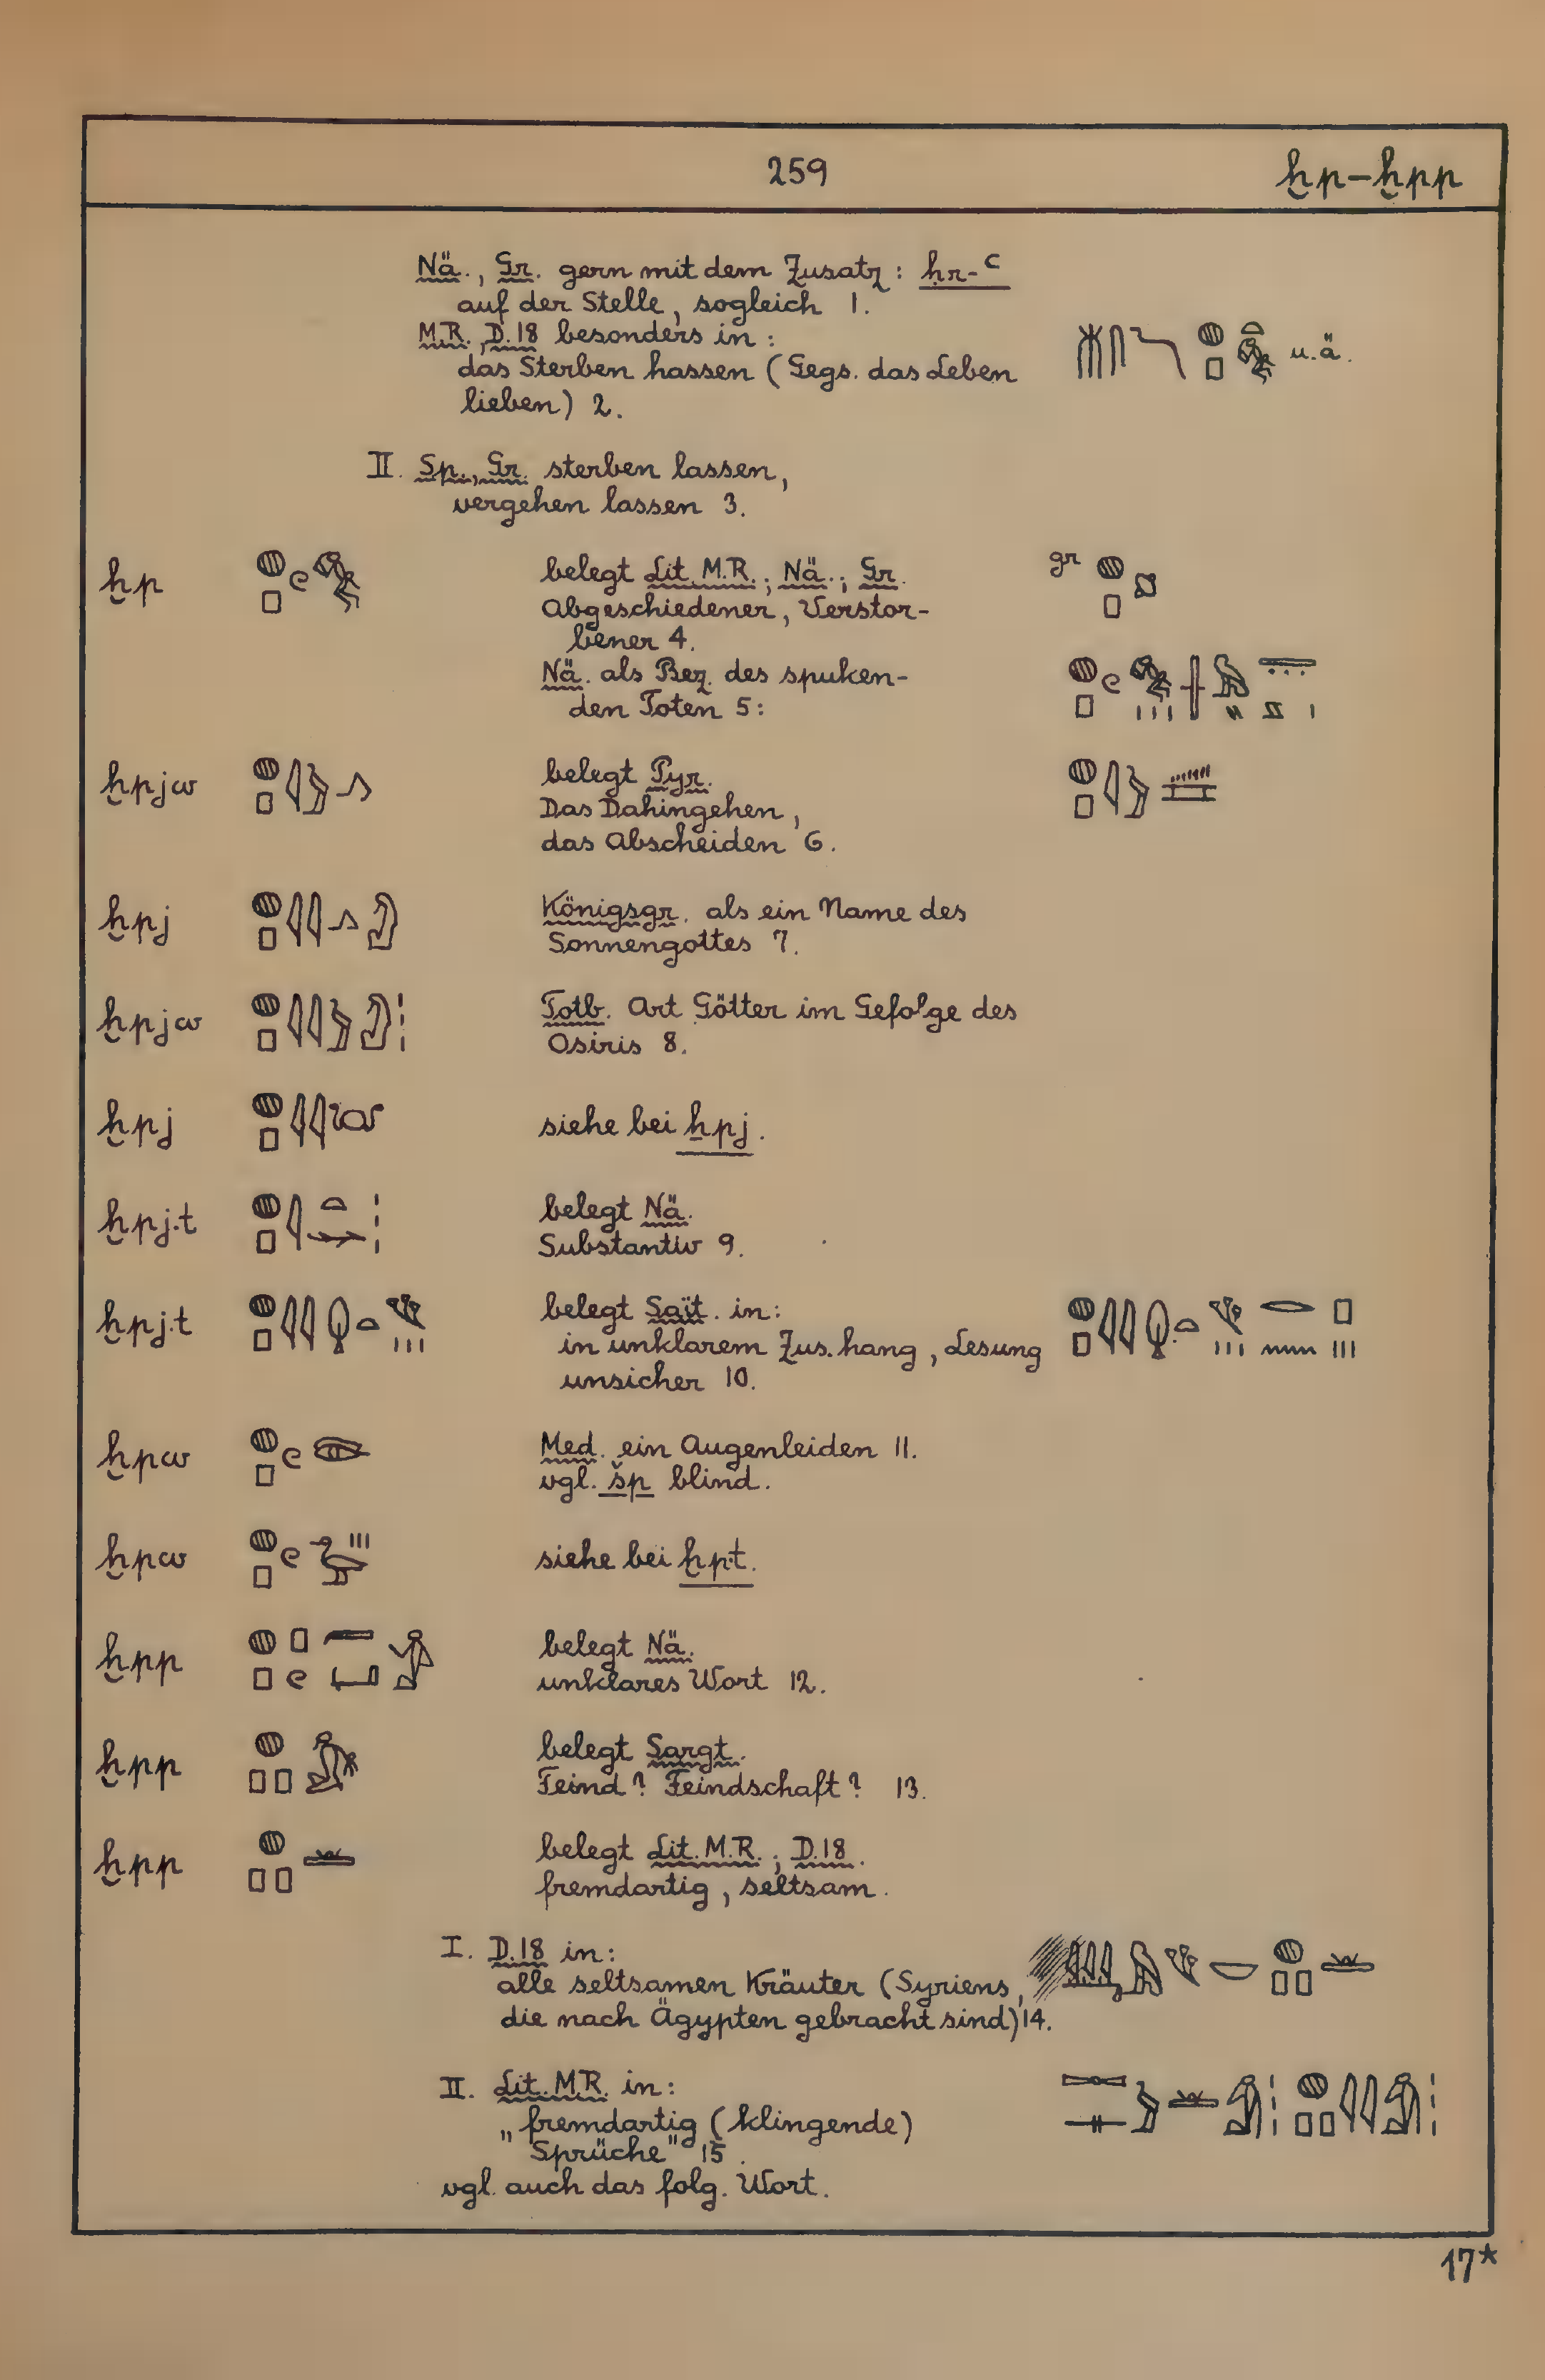 259
ḫp–ḫpp
Nä., Gr. gern mit dem Zusatz: ḥr-ꜥ
auf der Stelle, sogleich 1.
M.R., D.18 besonders in:
das Sterben hassen (Gegs. das Leben
u.ä.
lieben) 2.
II. Sp., Gr. sterben lassen,
vergehen lassen 3.
ḫp
belegt Lit. M.R.; Nä.; Gr.
gr
Abgeschiedener, Verstor-
bener 4.
Nä. als Bez. des spuken-
den Toten 5:
ḫpjw
belegt Pyr.
Das Dahingehen,
das Abscheiden 6.
ḫpj
Königsgr. als ein Name des
Sonnengottes 7.
ḫpjw
Totb. Art Götter im Gefolge des
Osiris 8.
ḫpj
siehe bei ẖpj.
ḫpj.t
belegt Nä.
Substantiv 9.
ḫpj.t
belegt Saït. in:
in unklarem Zus.hang, Lesung
unsicher 10.
ḫpw
Med. ein Augenleiden 11.
vgl. šp blind.
ḫpw
siehe bei ḫpt.
ḫpp
belegt Nä.
unklares Wort 12.
ḫpp
belegt Sargt.
Feind? Feindschaft? 13.
ḫpp
belegt Lit. M.R.; D.18.
fremdartig, seltsam.
I. D.18 in:
alle seltsamen Kräuter (Syriens,
die nach Ägypten gebracht sind) 14.
II. Lit. M.R. in:
„fremdartig (klingende)
Sprüche" 15.
vgl. auch das folg. Wort.
17*